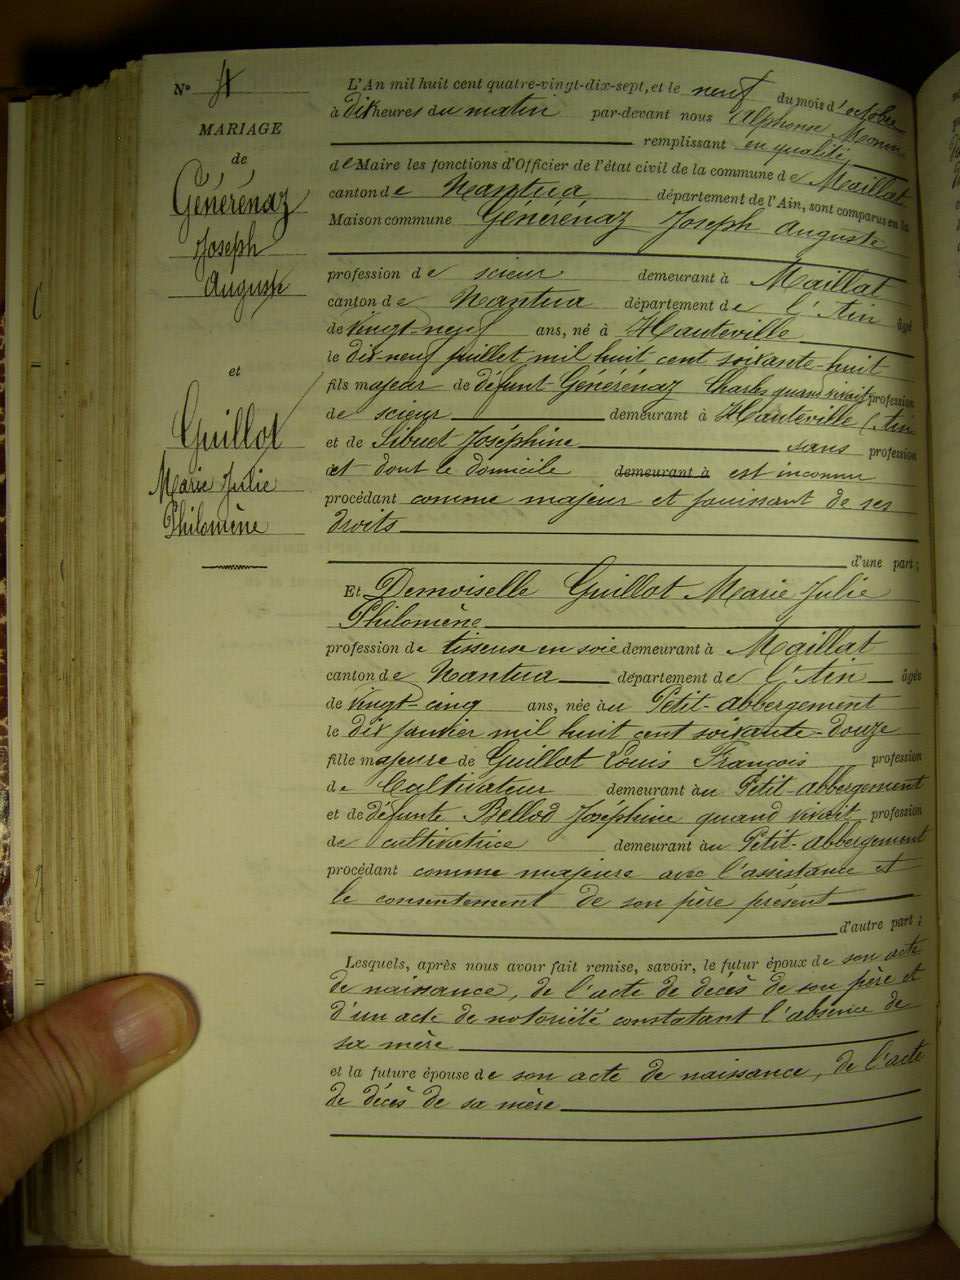 N° 4
MARIAGE
de
Génerénaz
Joseph
Auguste
et
Guillot
Marie Julie
Philomène
L'An mil huit cent quatre-vingt-dix-sept, et le neuf du mois d'octobre
à dix heures du matin par-devant nous Alphonse
remplissant en qualité
de Maire les fonctions d'Officier de l'état civil de la commune de Maillat
canton de Nantua département de l'Ain, sont comparus en la
Maison commune Génerénaz Joseph Auguste
profession de scieur demeurant à Maillat
canton de Nantua département de l'Ain âgé
de vingt-neuf ans, né à Hauteville
le dix-neuf juillet mil huit cent soixante-huit
fils majeur de défunt Génerénaz Charles quand vivait profession
de scieur demeurant à Hauteville (Ain
et de Sibuet Joséphine sans profession
et dont le domicile demeurant à est inconnu
procédant comme majeur et jouissant de ses
droits
d'une part;
Et Demoiselle Guillot Marie Julie
Philomène
profession de tisseuse en soie demeurant à Maillat
canton de Nantua département de l'Ain âgée
de vingt-cinq ans, née au Petit-abbergement
le dix janvier mil huit cent soixante-douze
fille majeure de Guillot Louis François profession
de Cultivateur demeurant au Petit-abbergement
et de défunte Bellod Joséphine quand vivait profession
de cultivatrice demeurant au Petit-abbergement
procédant comme majeure avec l'assistance et
le consentement de son père présent
d'autre part;
Lesquels, après nous avoir fait remise, savoir, le futur époux de son acte
de naissance, de l'acte de décès de son père et
d'un acte de notoriété constatant l'absence de
sa mère
et la future épouse de son acte de naissance, de l'acte
de décès de sa mère